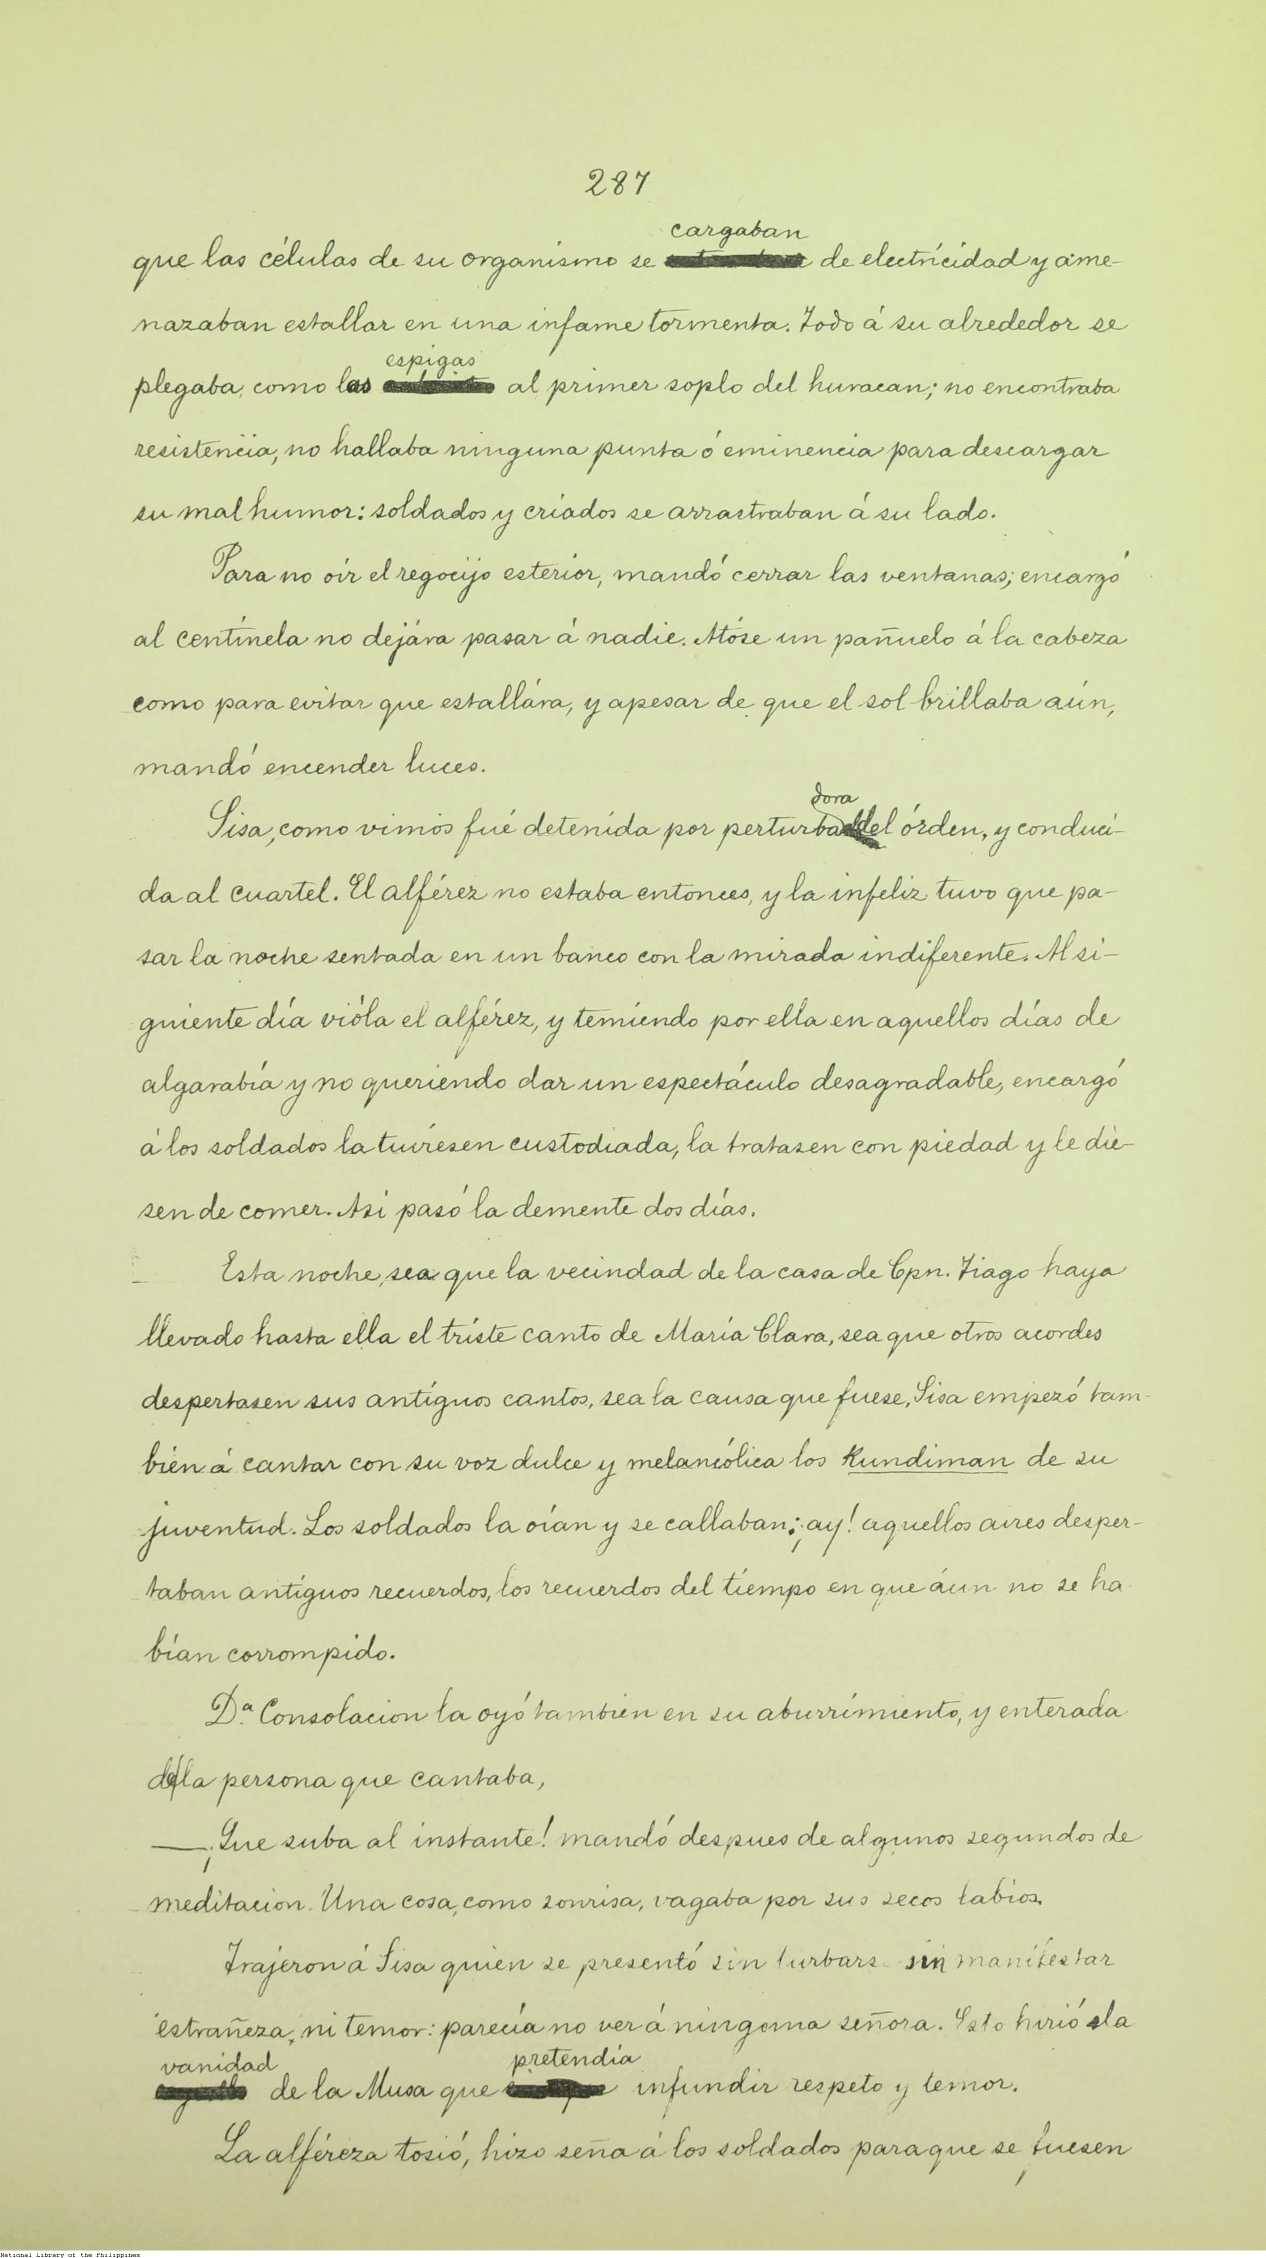 287
cargaban
que las células de su organismo se de electricidad y ame-
nazaban estallar en una infame tormenta. Todo á su alrededor se
espigas
plegaba, como las al primer soplo del huracan; no encontraba
resistencia, no hallaba ninguna punta ó eminencia para descargar
su mal humor: soldados y criados se arrastraban á su lado.
Para no oir el regocijo esterior, mandó cerrar las ventanas; encargó
al centinela no dejára pasar á nadie. Atóse un pañuelo á la cabeza
como para evitar que estallára, y apesar de que el sol brillaba aún,
mandó encender luces.
dora
Sisa, como vimos fué detenida por perturba del órden, y conduci-
da al cuartel. El alférez no estaba entonces, y la infeliz tuvo que pa-
sar la noche sentada en un banco con la mirada indiferente. Al si-
guiente día vióla el alférez, y temiendo por ella en aquellos días de
algarabía y no queriendo dar un espectáculo desagradable, encargó
á los soldados la tuviesen custodiada, la tratasen con piedad y le die-
sen de comer. Asi pasó la demente dos días.
Esta noche, sea que la vecindad de la casa de Cpn. Tiago haya
llevado hasta ella el triste canto de María Clara, sea que otros acordes
despertasen sus antiguos cantos, sea la causa que fuese, Sisa empezó tam-
bien á cantar con su voz dulce y melancólica los Kundiman de su
juventud. Los soldados la oían y se callaban; ¡ay! aquellos aires desper-
taban antiguos recuerdos, los recuerdos del tiempo en que áun no se ha
bían corrompido.
Da. Consolacion la oyó tambien en su aburrimiento, y enterada
de la persona que cantaba,
—¡Que suba al instante! mandó despues de algunos segundos de
meditacion. Una cosa, como sonrisa, vagaba por sus secos labios.
Trajeron á Sisa quien se presentó sin turbars sin manifestar
estrañeza, ni temor: parecía no ver á ninguna señora. Esto hirió la
vanidad pretendia
de la Musa que infundir respeto y temor.
La alféreza tosió, hizo seña á los soldados para que se fuesen
National Library of the Philippines